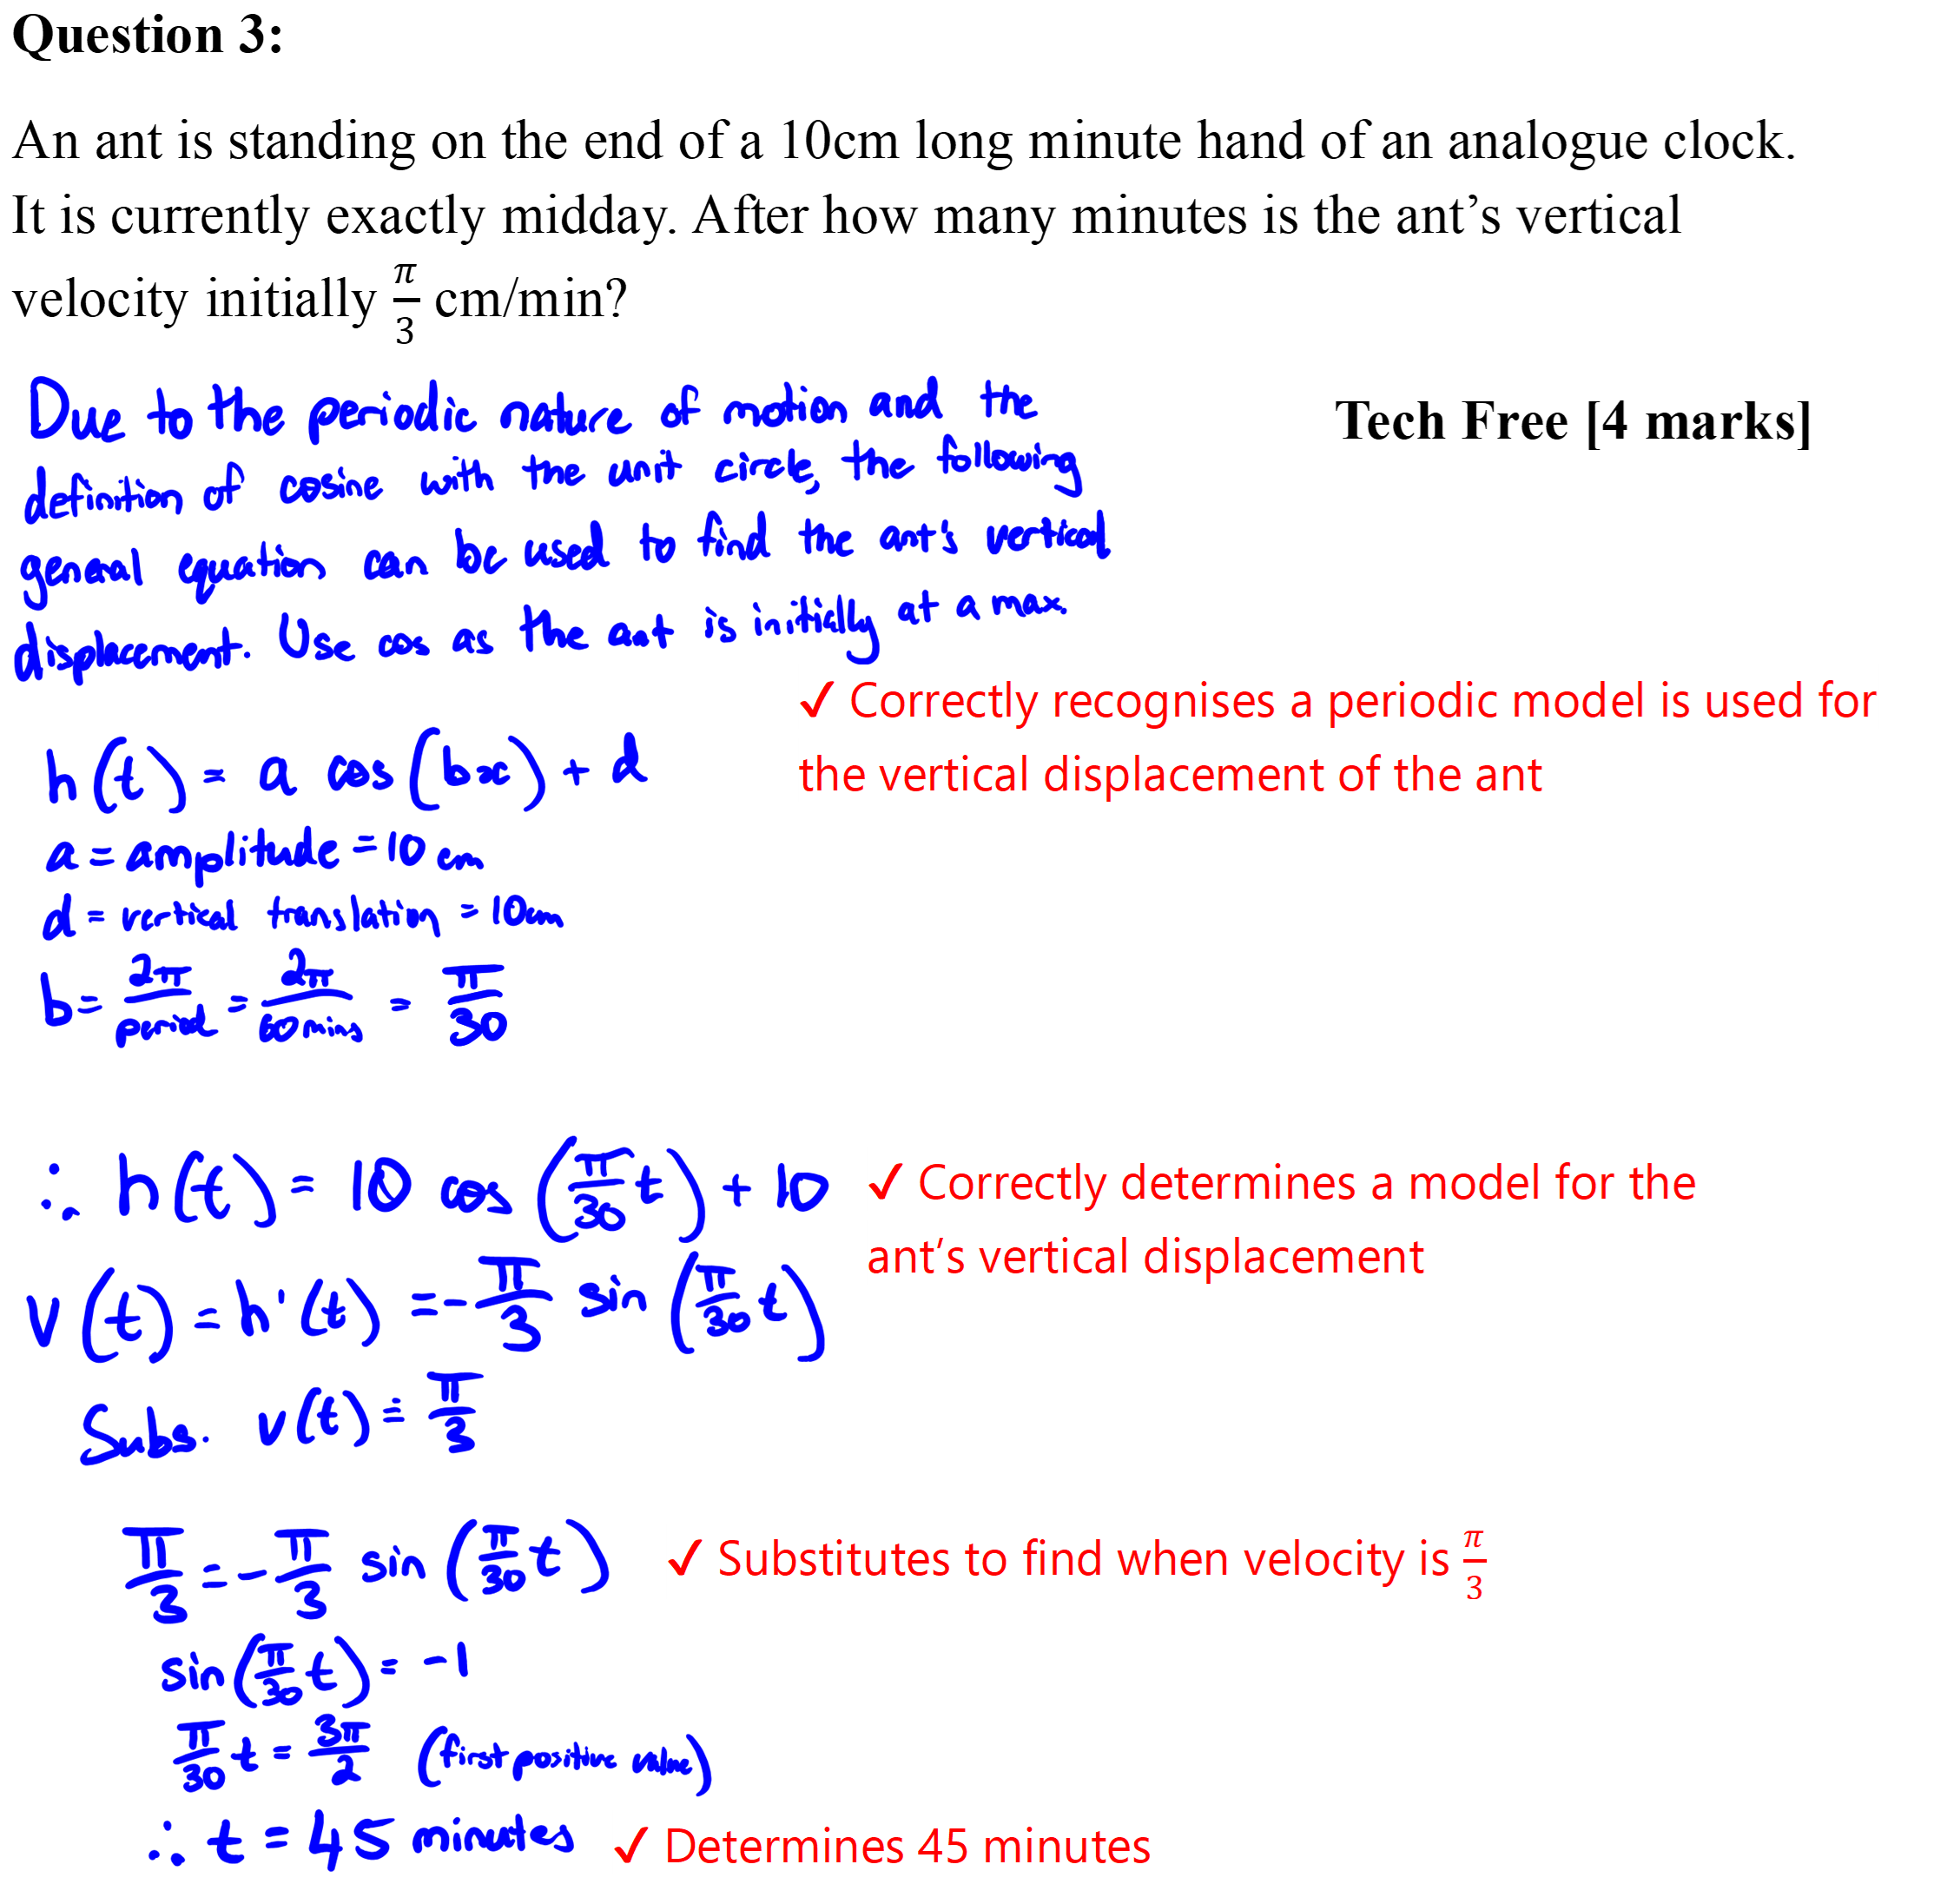 Question 3:
An ant is standing on the end of a 10cm long minute hand of an analogue clock.
It is currently exactly midday. After how many minutes is the ant’s vertical
velocity initially π/3 cm/min?
Due to the periodic nature of motion and the
Tech Free [4 marks]
definition of cosine with the unit circle, the following
general equation can be used to find the ant's vertical
displacement. Use cos as the ant is initially at a max.
✓ Correctly recognises a periodic model is used for
the vertical displacement of the ant
h(t) = a cos(bx) + d
a = amplitude = 10 cm
d = vertical translation = 10cm
b = 2π/period = 2π/60 mins = π/30
∴ h(t) = 10 cos(π/30 t) + 10
✓ Correctly determines a model for the
ant’s vertical displacement
v(t) = h'(t) = -π/3 sin(π/30 t)
Subs. v(t) = π/3
π/3 = -π/3 sin(π/30 t)
✓ Substitutes to find when velocity is π/3
sin(π/30 t) = -1
π/30 t = 3π/2 (first positive value)
∴ t = 45 minutes
✓ Determines 45 minutes